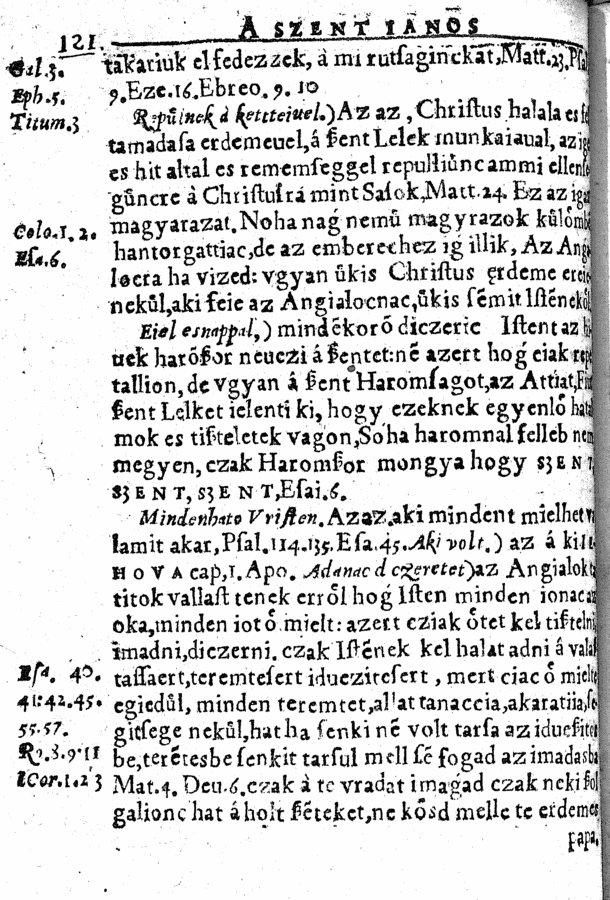 121. A SZENT IANOS
takariuk el fedezzek, à mi rutsaginckat, Matt. 23. Psal
Gal. 3.
9. Eze. 16. Ebreo. 9. 10
Eph. 5.
Repůlnek à kettteiuel.) Az az, Christus halala es fe
Titum. 3
tamadasa erdemeuel, á ſzent Lelek munkaiaual, az ige
es hit altal es rememseggel repulliůnc ammi ellense
gůncre à Christusrá mint Sasok, Matt. 24. Ez az igaz
magyarazat. Noha nag nemů magyrazok külömb
Colo. 1. 2.
hantorgattiac, de az emberechez ig illik, Az Ang
Esa. 6.
locra ha vized: vgyan ůkis Christus erdeme
nekůl, aki feie az Angialocnac, ůkis sémit Isténekől
Eiel esnappal,) mindékorő diczeric Istent az
uek harőſzor neuezi á ſzentet: né azert hog ciak
tallion, de vgyan á ſzent Haromsagot, az Attiat, Fi
ſzent Lelket ielenti ki, hogy ezeknek egyenlő hatal
mok es tiſzteletek vagon, Soha haromnal felleb nem
megyen, czak Haromſzor mongya hogy SZENT,
SZENT, SZENT, Esai. 6.
Mindenhato Vristen. Azaz, aki mindent mielhet
lamit akar, Psal. 114. 135. Esa. 45. Aki volt.) az á ki IE-
HOVA cap, 1. Apo. Adanac d czeretet) az Angialok
titok vallast tenek erről hog Isten minden ionac az
oka, minden iotő mielt: azert cziak őtet kel tiſztelni
imadni, diczerni. czak Istének kel halat adni á valaſz
tassaert, teremtesert iduezitesert, mert ciac ő mielte
Esa. 40.
egiedůl, minden teremtet, allat tanaccia, akaratiia, se
41: 42. 45.
gitsege nekůl, hat ha senki né volt tarsa az iduesites
55. 57.
be, terétesbe senkit tarsul mell sé fogad az imadasba
Ro. 8. 9. 11
Mat. 4. Deu. 6. czak à te vradat imagad czak neki ſzol
1 Cor. 1. 2 3
galionc hat á holt ſzéteket, ne kősd melle te erdemes
papa.